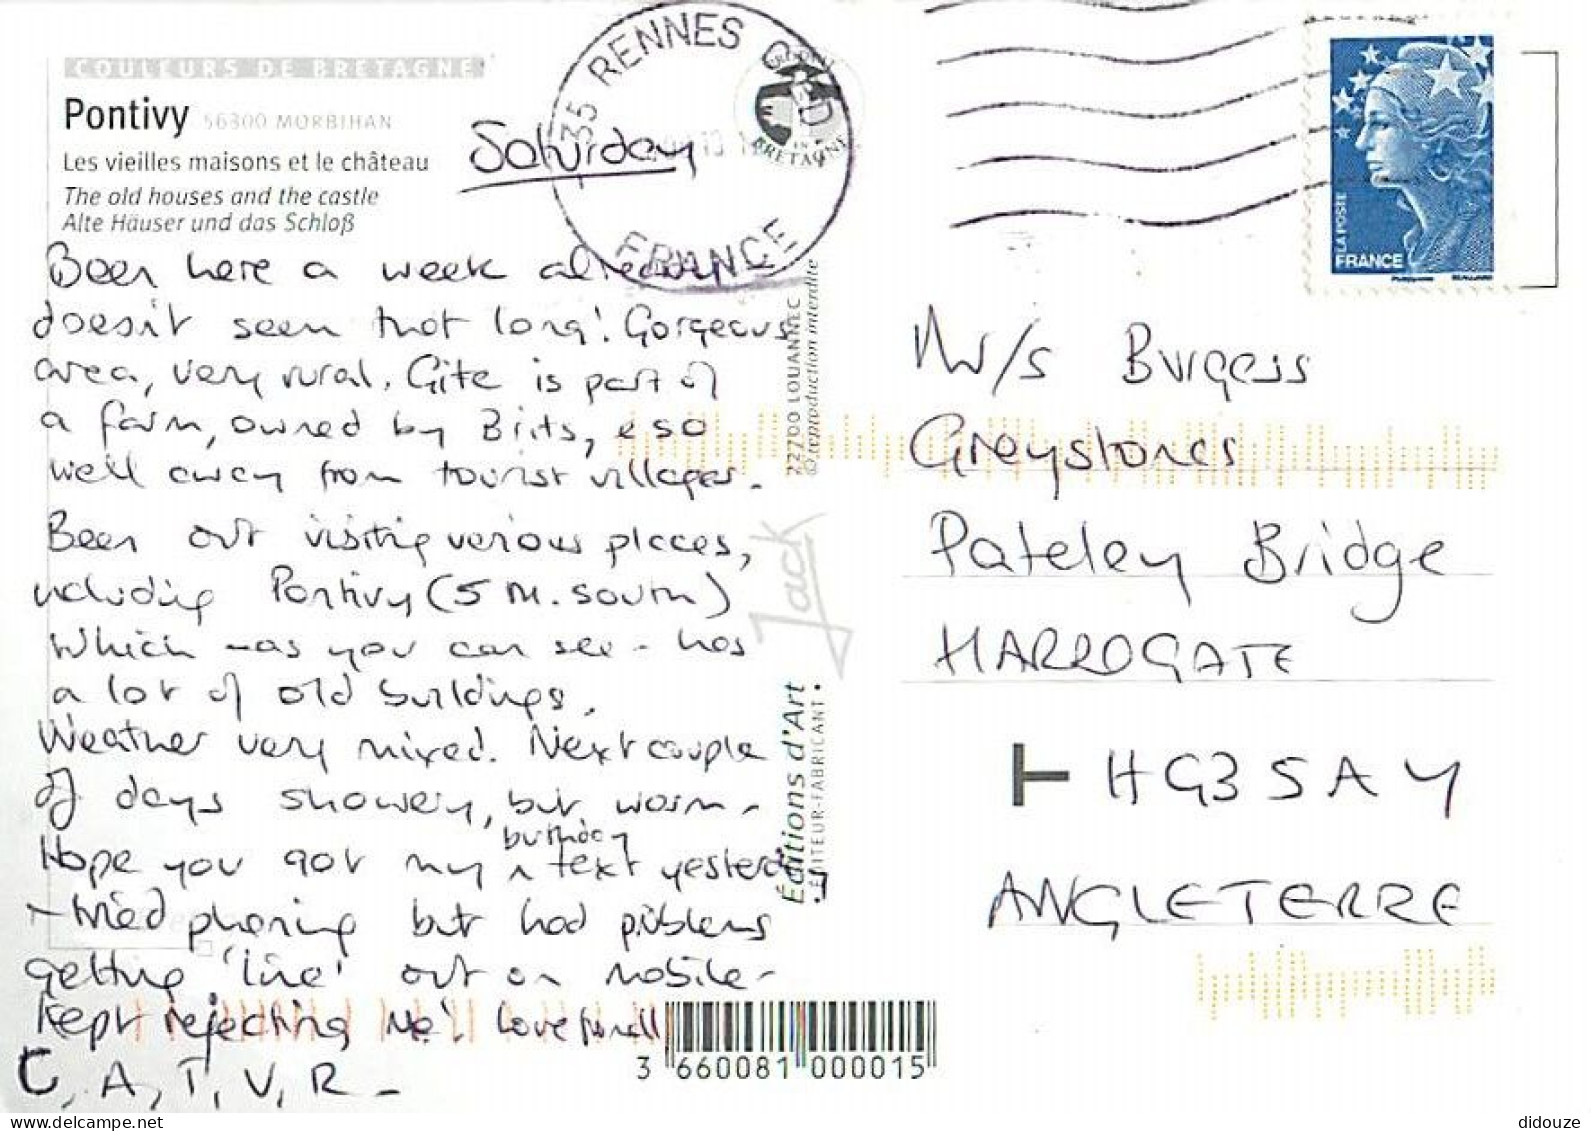 COULEURS DE BRETAGNE
Pontivy 56300 MORBIHAN
Les vieilles maisons et le château
The old houses and the castle
Alte Häuser und das Schloß
35 RENNES
FRANCE
BRETAGNE
LA POSTE
FRANCE
Saturday
Been here a week already
doesn't seem that long! Gorgeous
area, very rural. Gite is part of
a farm, owned by Brits, & so
well away from tourist villages.
Been out visiting various places,
including Pontivy (5 m. south)
which - as you can see - has
a lot of old buildings.
Weather very mixed. Next couple
of days showery, but warm -
Hope you got my birthday text yesterday
- tried phoning but had problems
getting 'line' out on mobile -
kept rejecting me! Love from all
C, A, T, V, R -
22700 LOUANNEC
© reproduction interdite
Jack
Éditions d'Art
ÉDITEUR-FABRICANT
Mr/s Burgess
Greystones
Pateley Bridge
HARROGATE
HG3 5AY
ANGLETERRE
3 660081 000015
delcampe.net
didouze